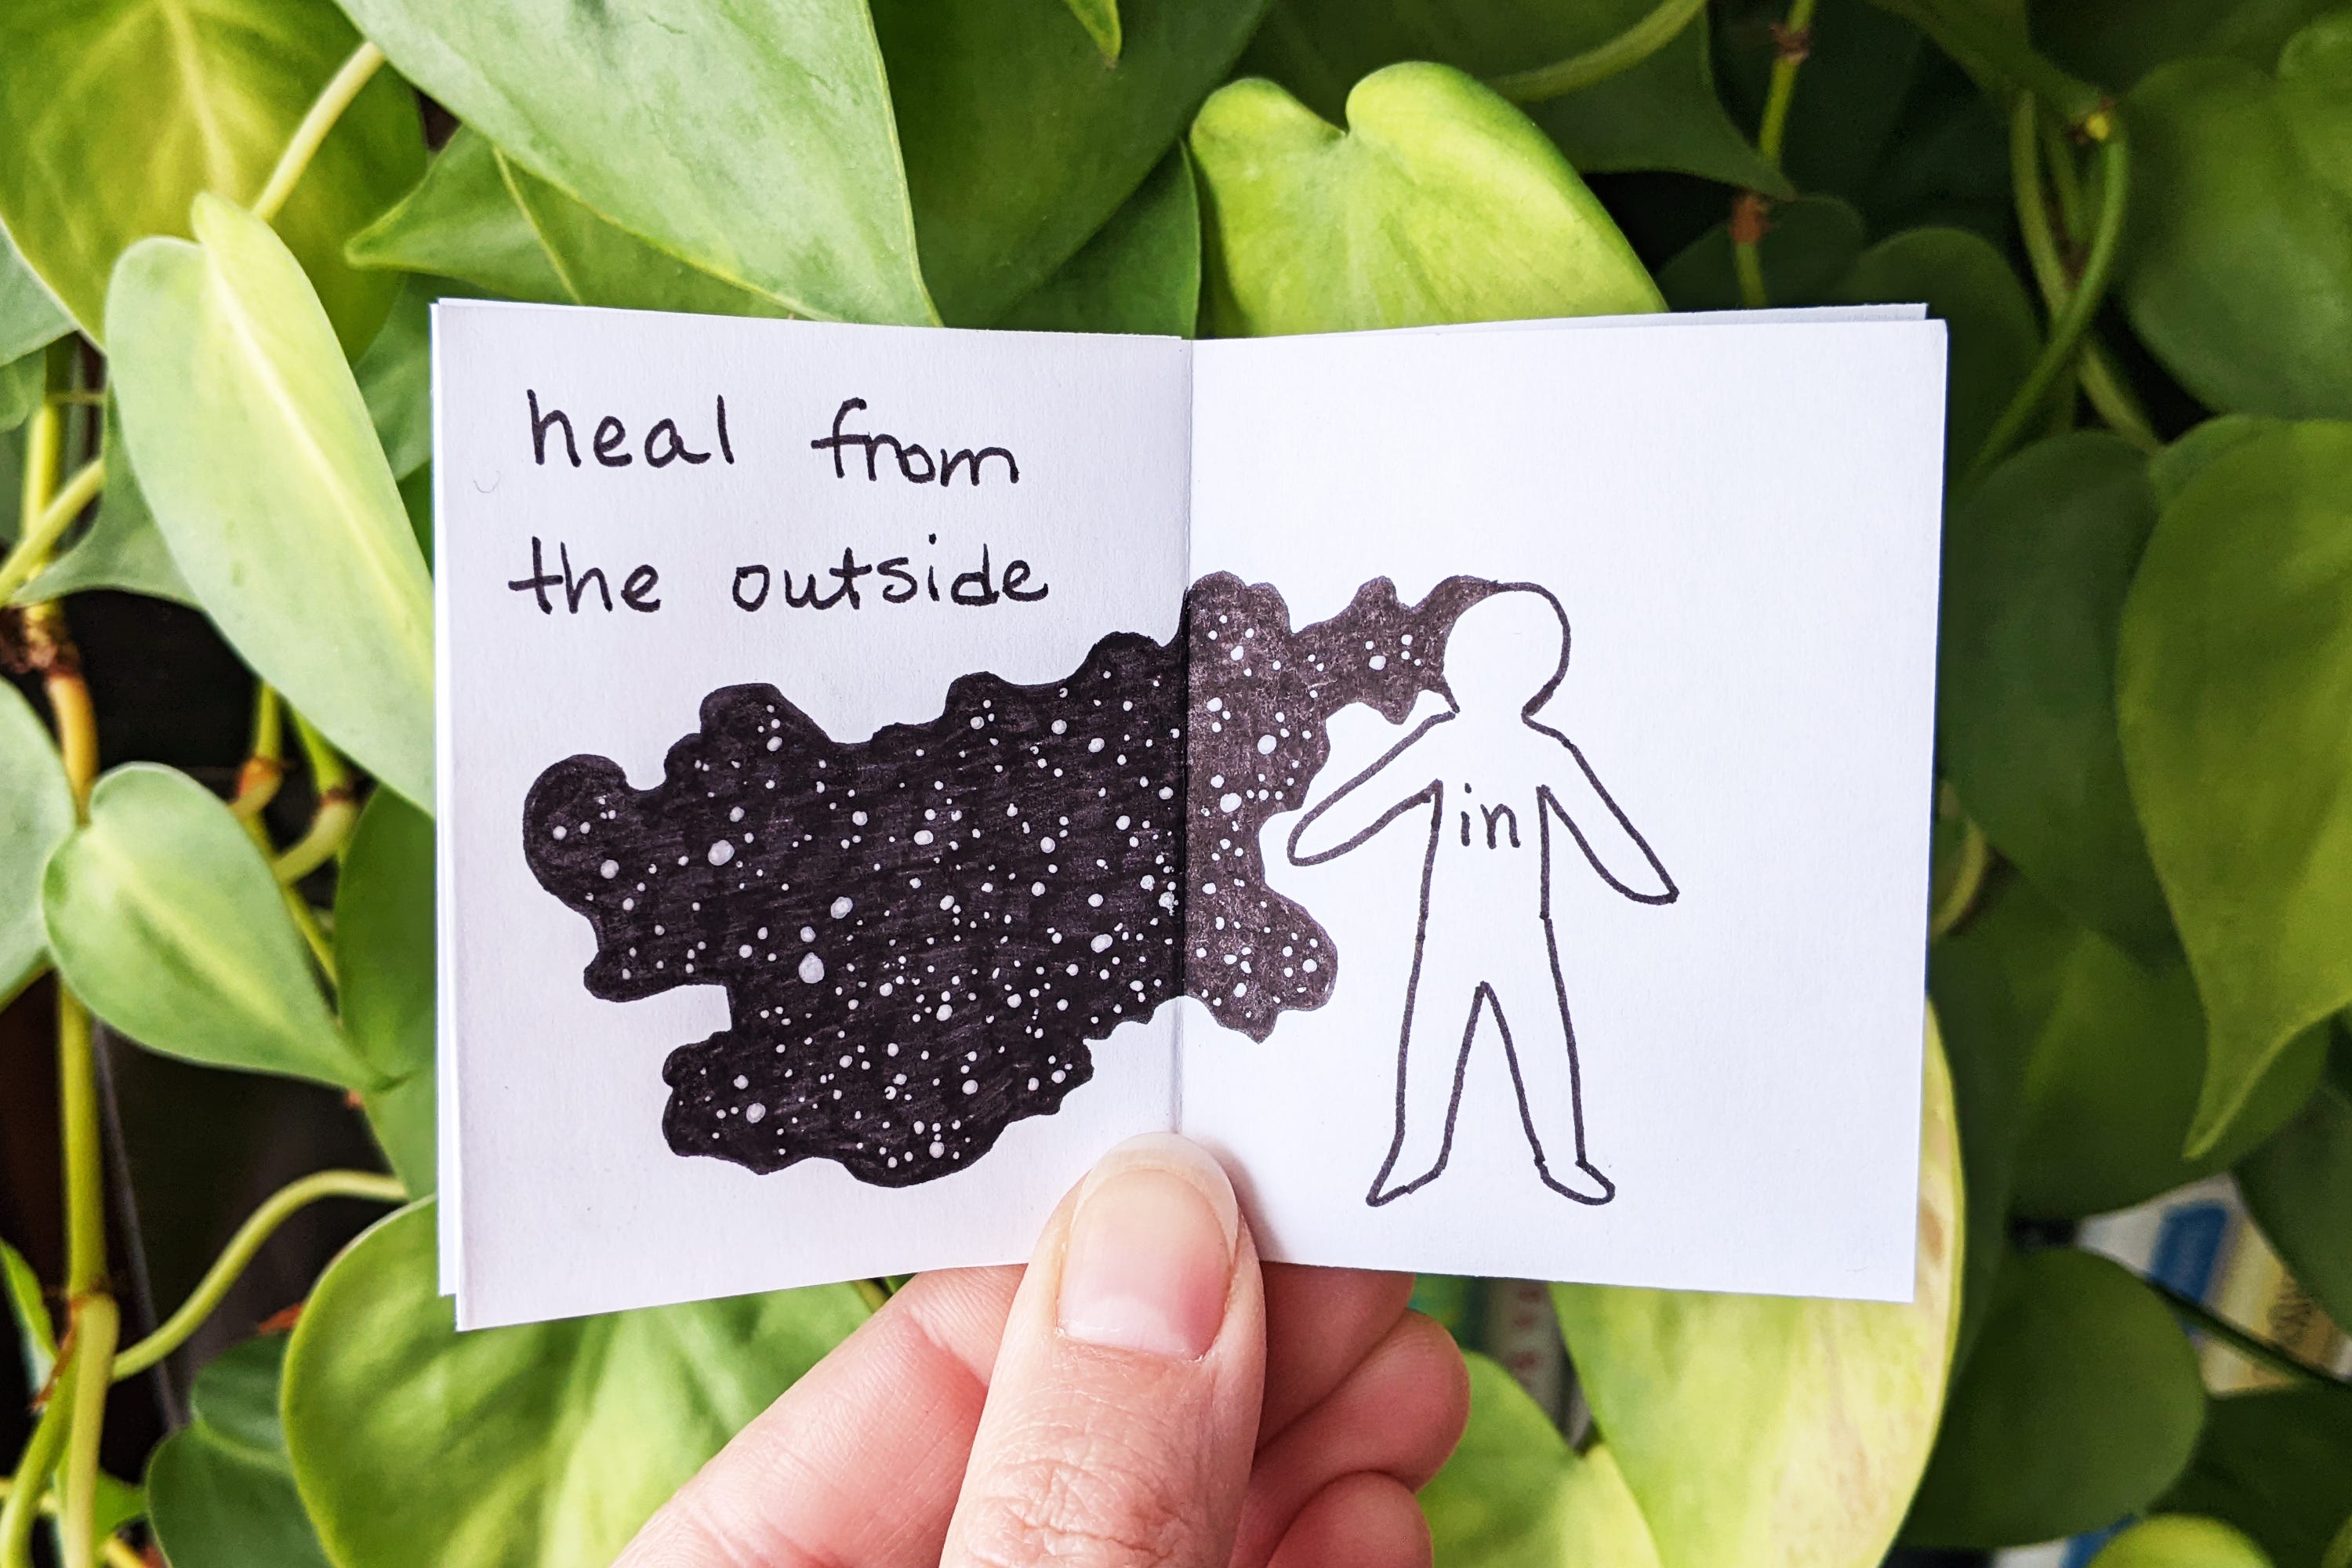 heal from
the outside
in